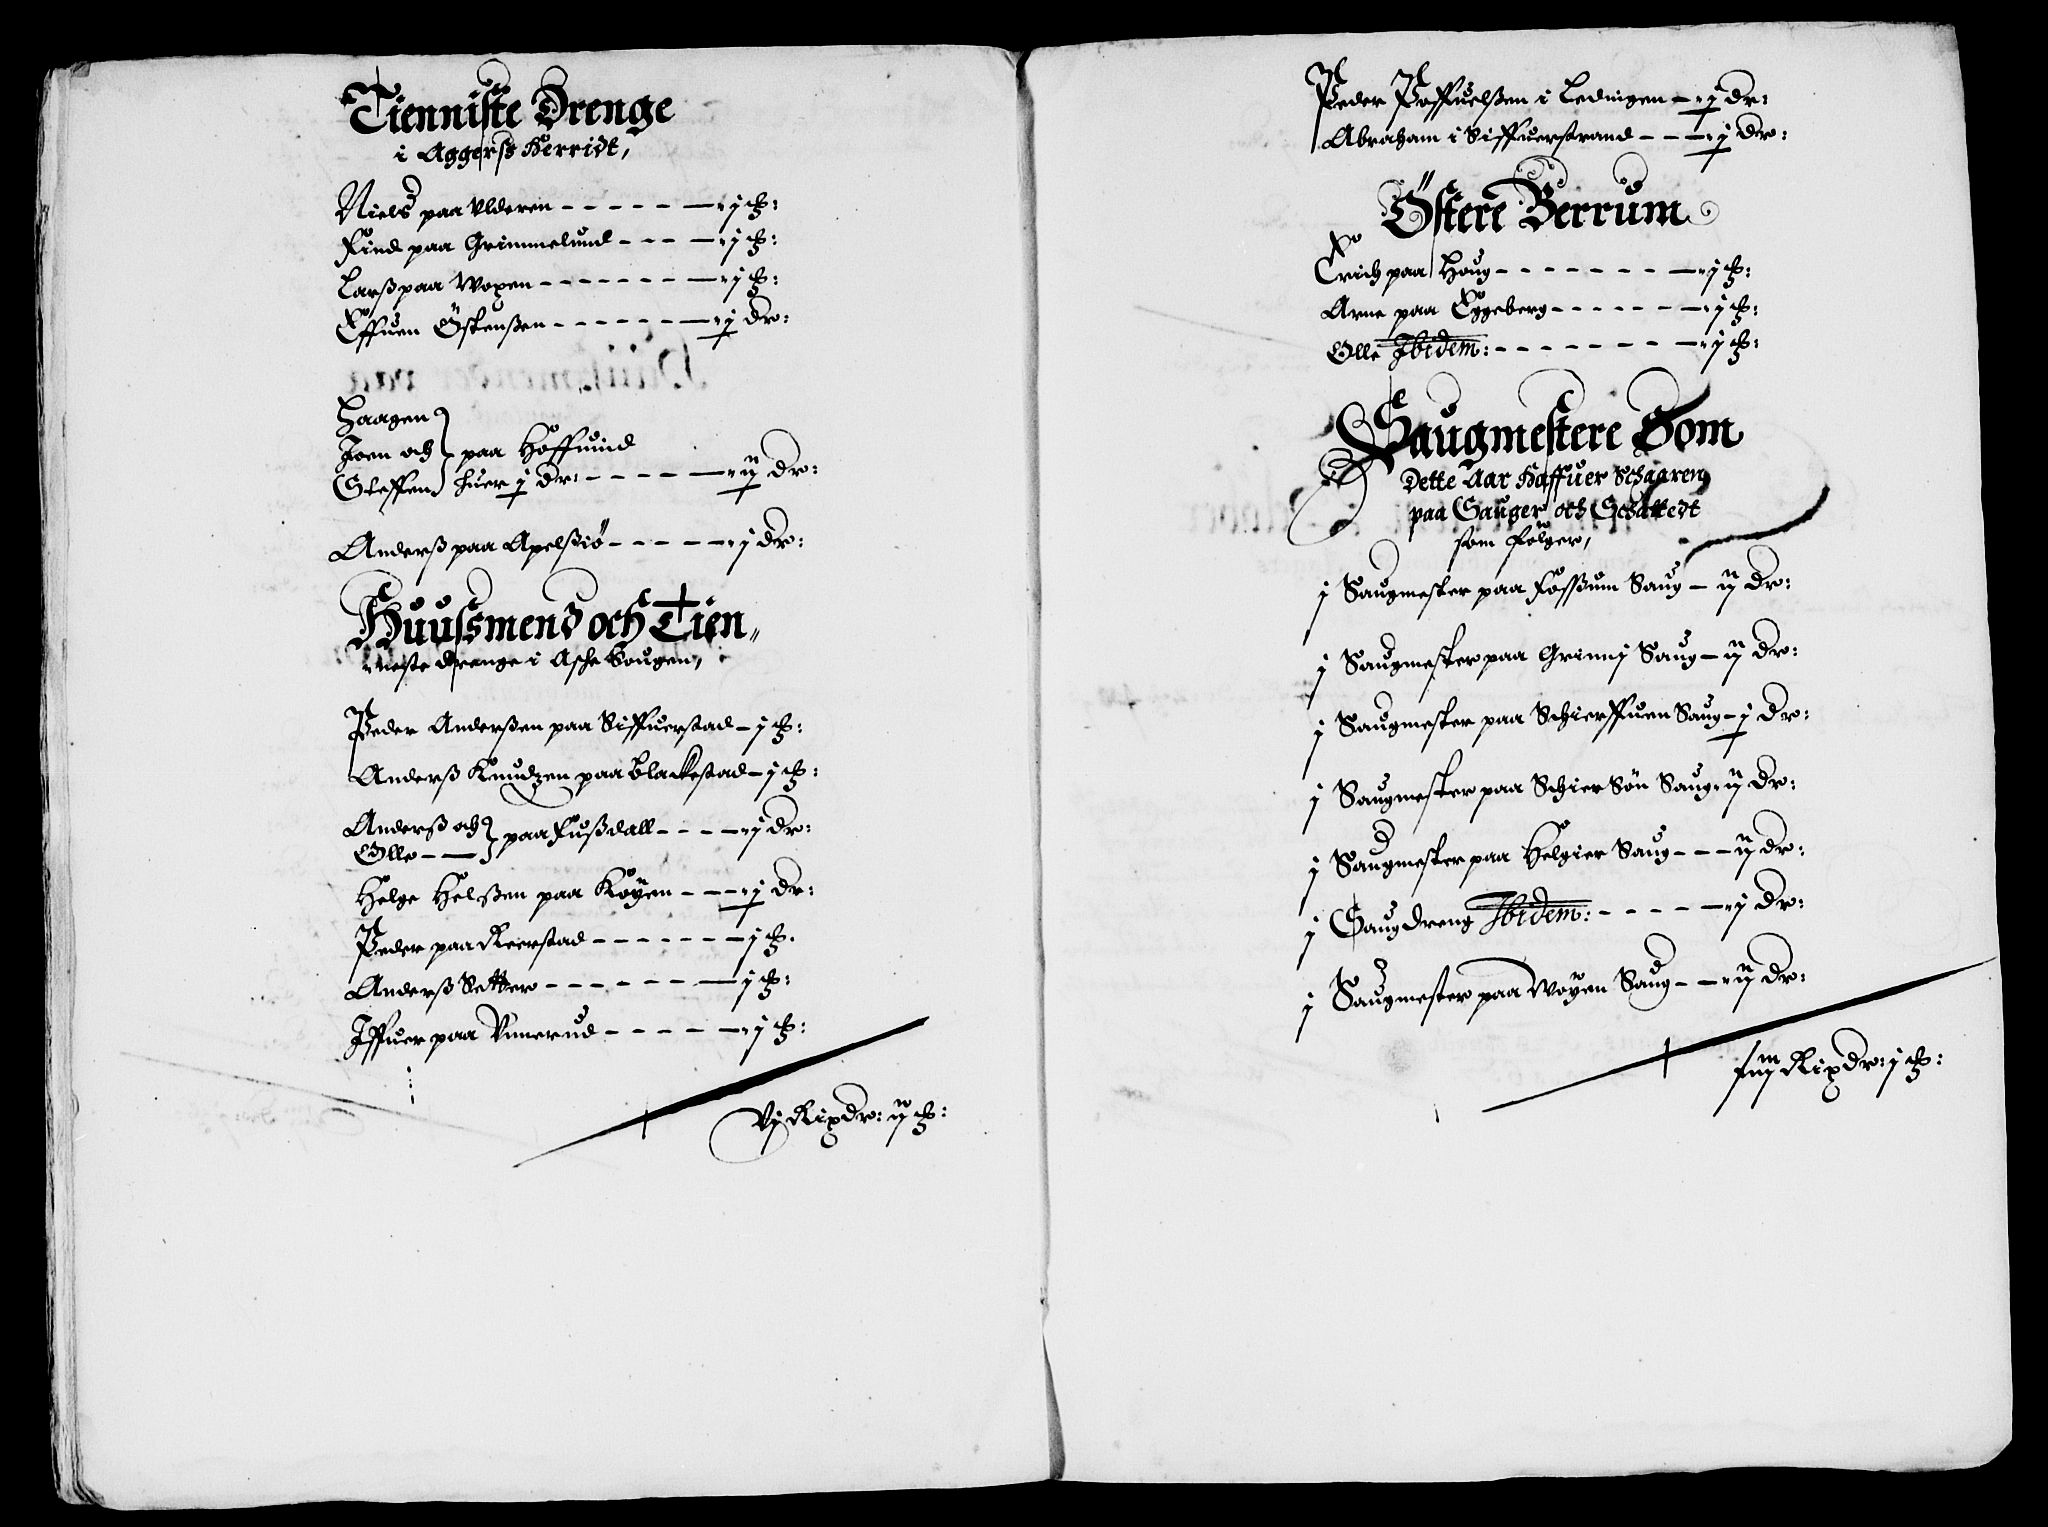 Tienniste Drenge
i Aggerss Herridt,
Niels paa Ulderen - - - - - - j ch:
Find paa Grimmelund - - - - j ch:
Larss paa Woxen - - - - - - - j ch:
Effuen Östenssen - - - - - - j dr:
Haagen
Joen och paa Hoffuind
Steffen huer j dr: - - - - - ij dr:
Anderss paa Apelssiö - - - - - j dr:
Huussmend och Tien„
neste drenge i Asche Sougen,
Peder Anderssen paa Siffuerstad - j ch:
Anderss Knudzen paa Blackestad - j ch:
Anderss och paa Fussdall - - - - j dr:
Olle - -
Helge Helssen paa Köyen - - - j dr:
Peder paa Reerstad - - - - - - - j ch.
Anderss Setter - - - - - - - j ch:
Iffuer paa Unnerud - - - - - - j ch:
Vj Rixdr: ij ch:
Peder Poffuelssen i Ledingen - j dr:
Abraham i Siffuerstrand - - - j dr:
Östere Berrum
Erich paa Houg - - - - - - - - j ch:
Arne paa Eggeberg - - - - - - j ch:
Olle Ibidem: - - - - - - - - j ch:
Saugmestere Som
Dette Aar Haffuer Schaaren
paa Sauger och Schattedt
som fölger,
j Saugmester paa Fossum Saug - ij dr:
j Saugmester paa Grinnj Saug - ij dr:
j Saugmester paa Schierffuen Saug - j dr:
j Saugmester paa Schier Sön Saug - ij dr:
j Saugmester paa Helgier Saug - - - ij dr:
j Saugdreng Ibidem: - - - - - - j dr:
j Saugmester paa Woyen Saug - - ij dr:
Rixdr: j ch: